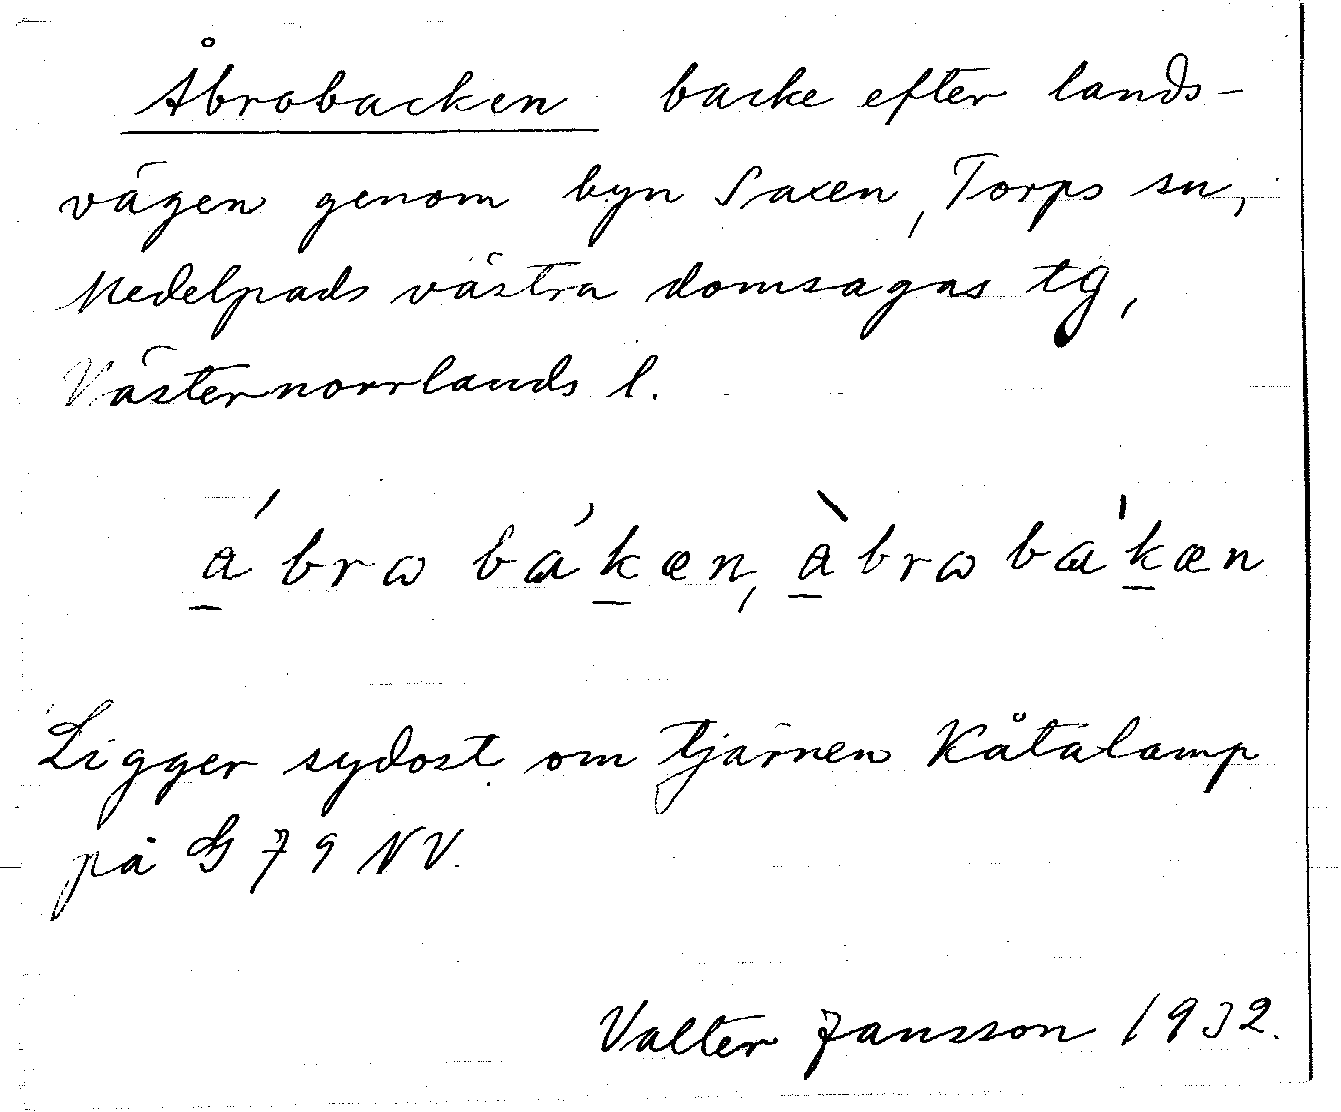 Åbrobacken backe efter lands-
vägen genom byn Saxen, Torps sn,
Medelpads västra domsagas tg,
Västernorrlands l.
á̲brω bɑ́k̲æn, à̲brω bɑ̍k̲æn
Ligger sydost om tjärnen Kåtalamp
på G 79 NV.
Valter Jansson 1932.